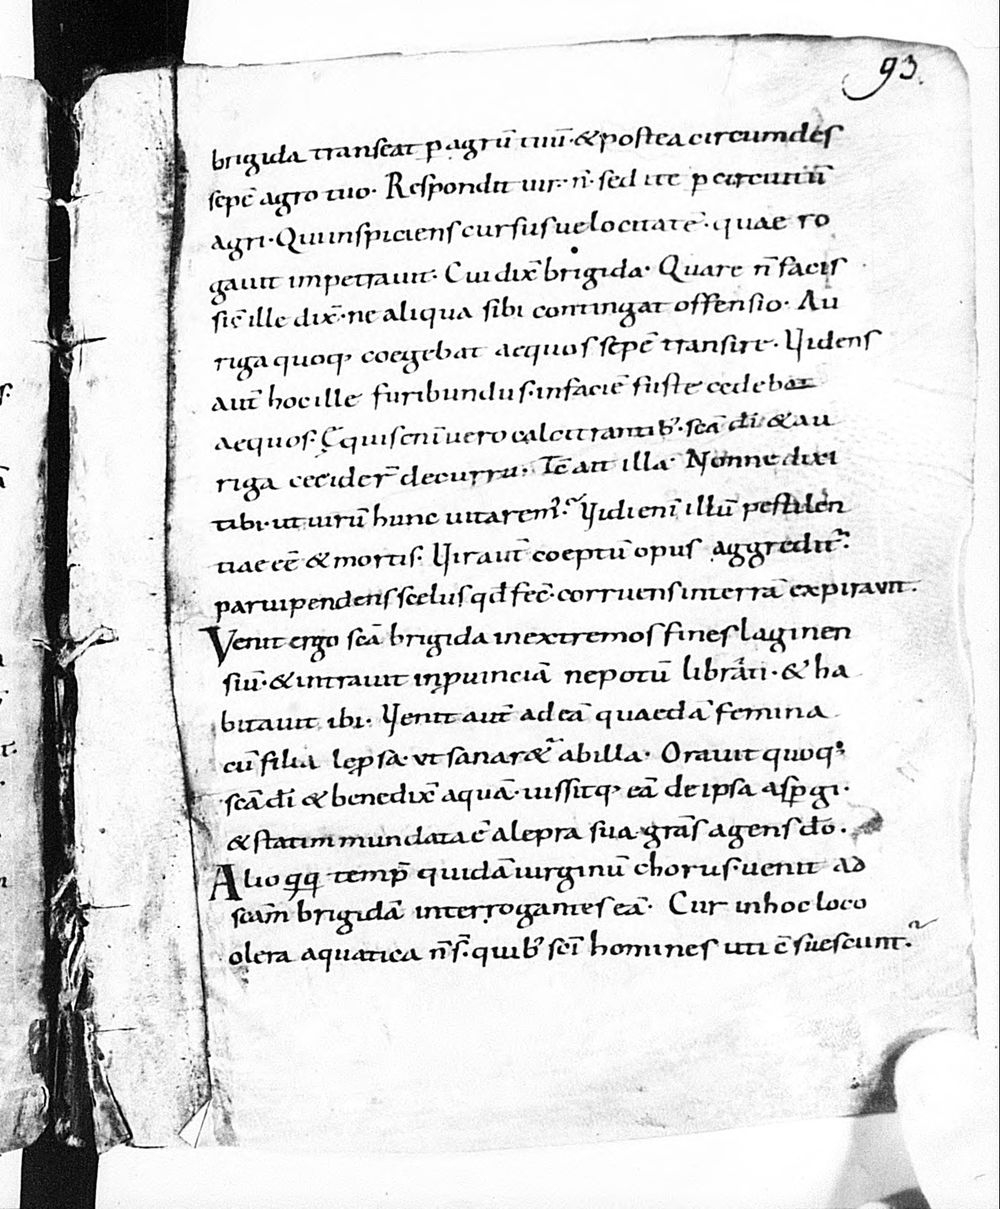 93.
brigida transeat p̱ agrū tuū· & postea circumdes
sepē agro tuo· Respondit uir· n̄· sed ite p̱ circuitū
agri· Qui inspiciens cursus uelocitatē· quae ro
gauit impetrauit· Cui dix̄ brigida· Quare n̄ facis
sic̄ ille dix̄· ne aliqua sibi contingat offensio· Au
riga quoq; coegebat aequos sepē transire· Videns
aut̄ hoc ille furibundus· in faciē fuste cedebat
aequos· Equis eni uero calcitrantib;· sc̄a dī & au
riga cecider̄ de curru· Tc̄ ait illa· Nonne dixi
tibi· ut uirū hunc uitarem? Vidi eni illū pestilen
tiae eē & mortis· Vir aut̄ coeptū opus aggredit̄·
paruipendens scelus qđ fec̄· corruens in terrā expirauit·
Venit ergo sc̄a brigida in extremos fines laginen
siū· & intrauit in ꝓuinciā nepotū librāti· & ha
bitauit ibi· Venit aut̄ ad eā quaedā femina
cū filia lep̱sa· ut sanar&̄ ab illa· Orauit quoq;
sc̄a dī & benedix̄ aquā· iussitq; eā de ipsa asp̱gi·
& statim mundata ē a lepra sua· grās agens dō·
Alio qq̱ temp̄ quidā uirginū chorus· uenit ad
sc̄am brigidā interrogantes eā· Cur in hoc loco
olera aquatica n̄ s̄· quib; sc̄i homines uti c̄suescunt?